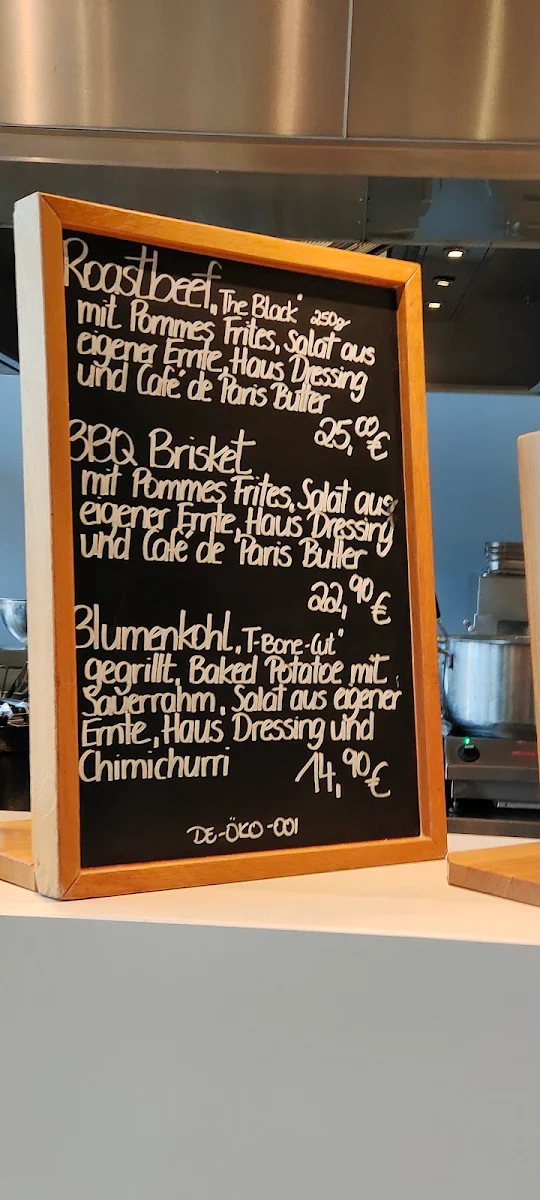 Roastbeef „The Block" 250gr
mit Pommes Frites, Salat aus
eigener Ernte, Haus Dressing
und Café de Paris Butter
25,00€
BBQ Brisket
mit Pommes Frites, Salat aus
eigener Ernte, Haus Dressing
und Café de Paris Butter
22,90€
Blumenkohl „T-Bone-Cut"
gegrillt, Baked Potatoe mit
Sauerrahm, Salat aus eigener
Ernte, Haus Dressing und
Chimichurri 14,90€
DE-ÖKO-001